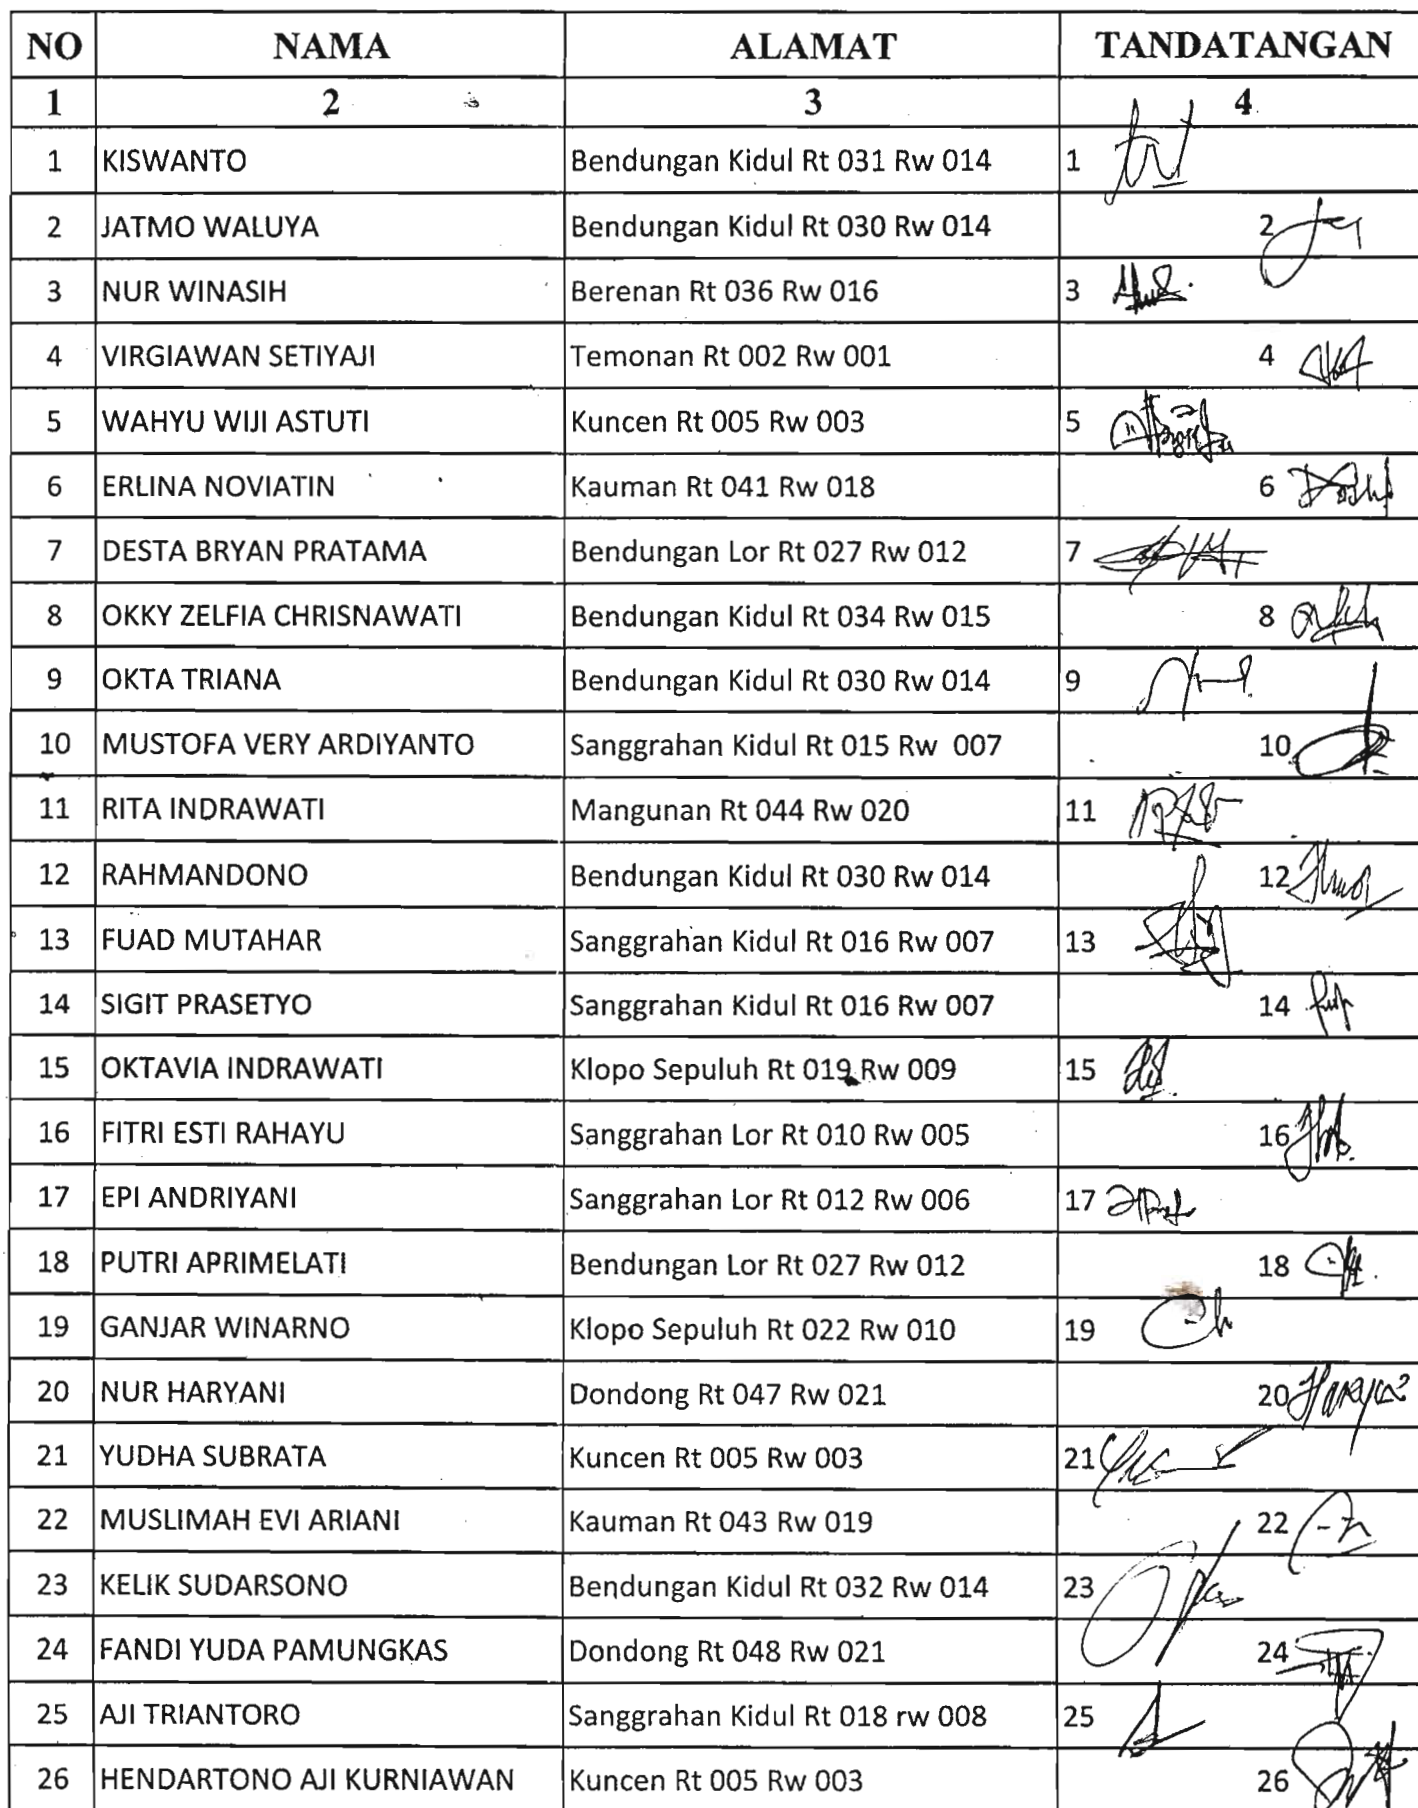 NO NAMA ALAMAT TANDATANGAN
1 2 3 4
1 KISWANTO Bendungan Kidul Rt 031 Rw 014 1
2 JATMO WALUYA Bendungan Kidul Rt 030 Rw 014 2
3 NUR WINASIH Berenan Rt 036 Rw 016 3
4 VIRGIAWAN SETIYAJI Temonan Rt 002 Rw 001 4
5 WAHYU WIJI ASTUTI Kuncen Rt 005 Rw 003 5
6 ERLINA NOVIATIN Kauman Rt 041 Rw 018 6
7 DESTA BRYAN PRATAMA Bendungan Lor Rt 027 Rw 012 7
8 OKKY ZELFIA CHRISNAWATI Bendungan Kidul Rt 034 Rw 015 8
9 OKTA TRIANA Bendungan Kidul Rt 030 Rw 014 9
10 MUSTOFA VERY ARDIYANTO Sanggrahan Kidul Rt 015 Rw 007 10
11 RITA INDRAWATI Mangunan Rt 044 Rw 020 11
12 RAHMANDONO Bendungan Kidul Rt 030 Rw 014 12
13 FUAD MUTAHAR Sanggrahan Kidul Rt 016 Rw 007 13
14 SIGIT PRASETYO Sanggrahan Kidul Rt 016 Rw 007 14
15 OKTAVIA INDRAWATI Klopo Sepuluh Rt 019 Rw 009 15
16 FITRI ESTI RAHAYU Sanggrahan Lor Rt 010 Rw 005 16
17 EPI ANDRIYANI Sanggrahan Lor Rt 012 Rw 006 17
18 PUTRI APRIMELATI Bendungan Lor Rt 027 Rw 012 18
19 GANJAR WINARNO Klopo Sepuluh Rt 022 Rw 010 19
20 NUR HARYANI Dondong Rt 047 Rw 021 20
21 YUDHA SUBRATA Kuncen Rt 005 Rw 003 21
22 MUSLIMAH EVI ARIANI Kauman Rt 043 Rw 019 22
23 KELIK SUDARSONO Bendungan Kidul Rt 032 Rw 014 23
24 FANDI YUDA PAMUNGKAS Dondong Rt 048 Rw 021 24
25 AJI TRIANTORO Sanggrahan Kidul Rt 018 rw 008 25
26 HENDARTONO AJI KURNIAWAN Kuncen Rt 005 Rw 003 26